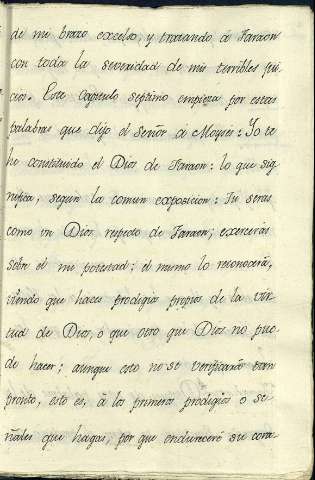 de mi brazo excelso, y tratando á Faraon
con toda la severidad de mis terribles jui
cios. Este capitulo septimo empieza por estas
palabras que dijo el Señor á Moyses: Yo te
he constituido el Dios de Faraon: lo que sig
nifica, segun la comun exposicion: Tu seras
como un Dios respecto de Faraon; exerceràs
sobre el mi potestad; el mismo lo reconocerà,
viendo que haces prodigios propios de la vir
tud de Dios, ó que otro que Dios no pue
de hacer; aunque esto no se verificarà tan
pronto, esto es, á los primeros prodigios o se
ñales que hagas, por que endureceré su cora